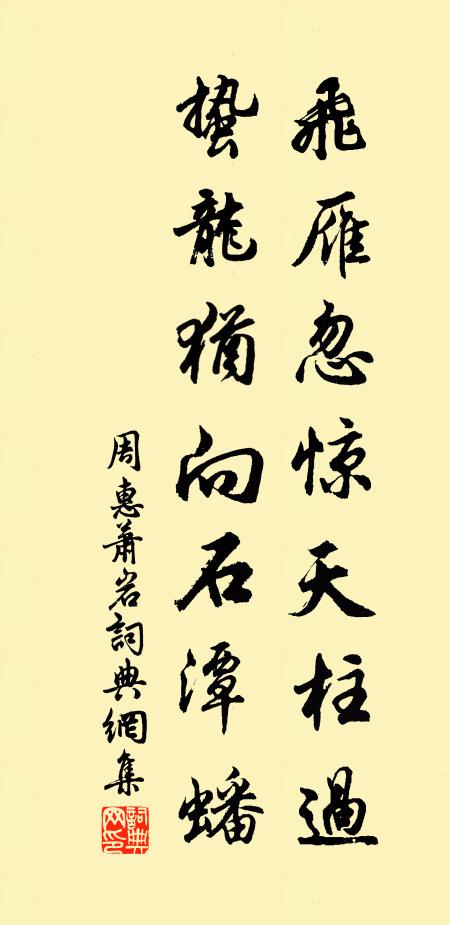 飛雁忽惊天柱過
蟄龍猶向石潭蟠
周惠蕭岩詞典網集
詞典网印